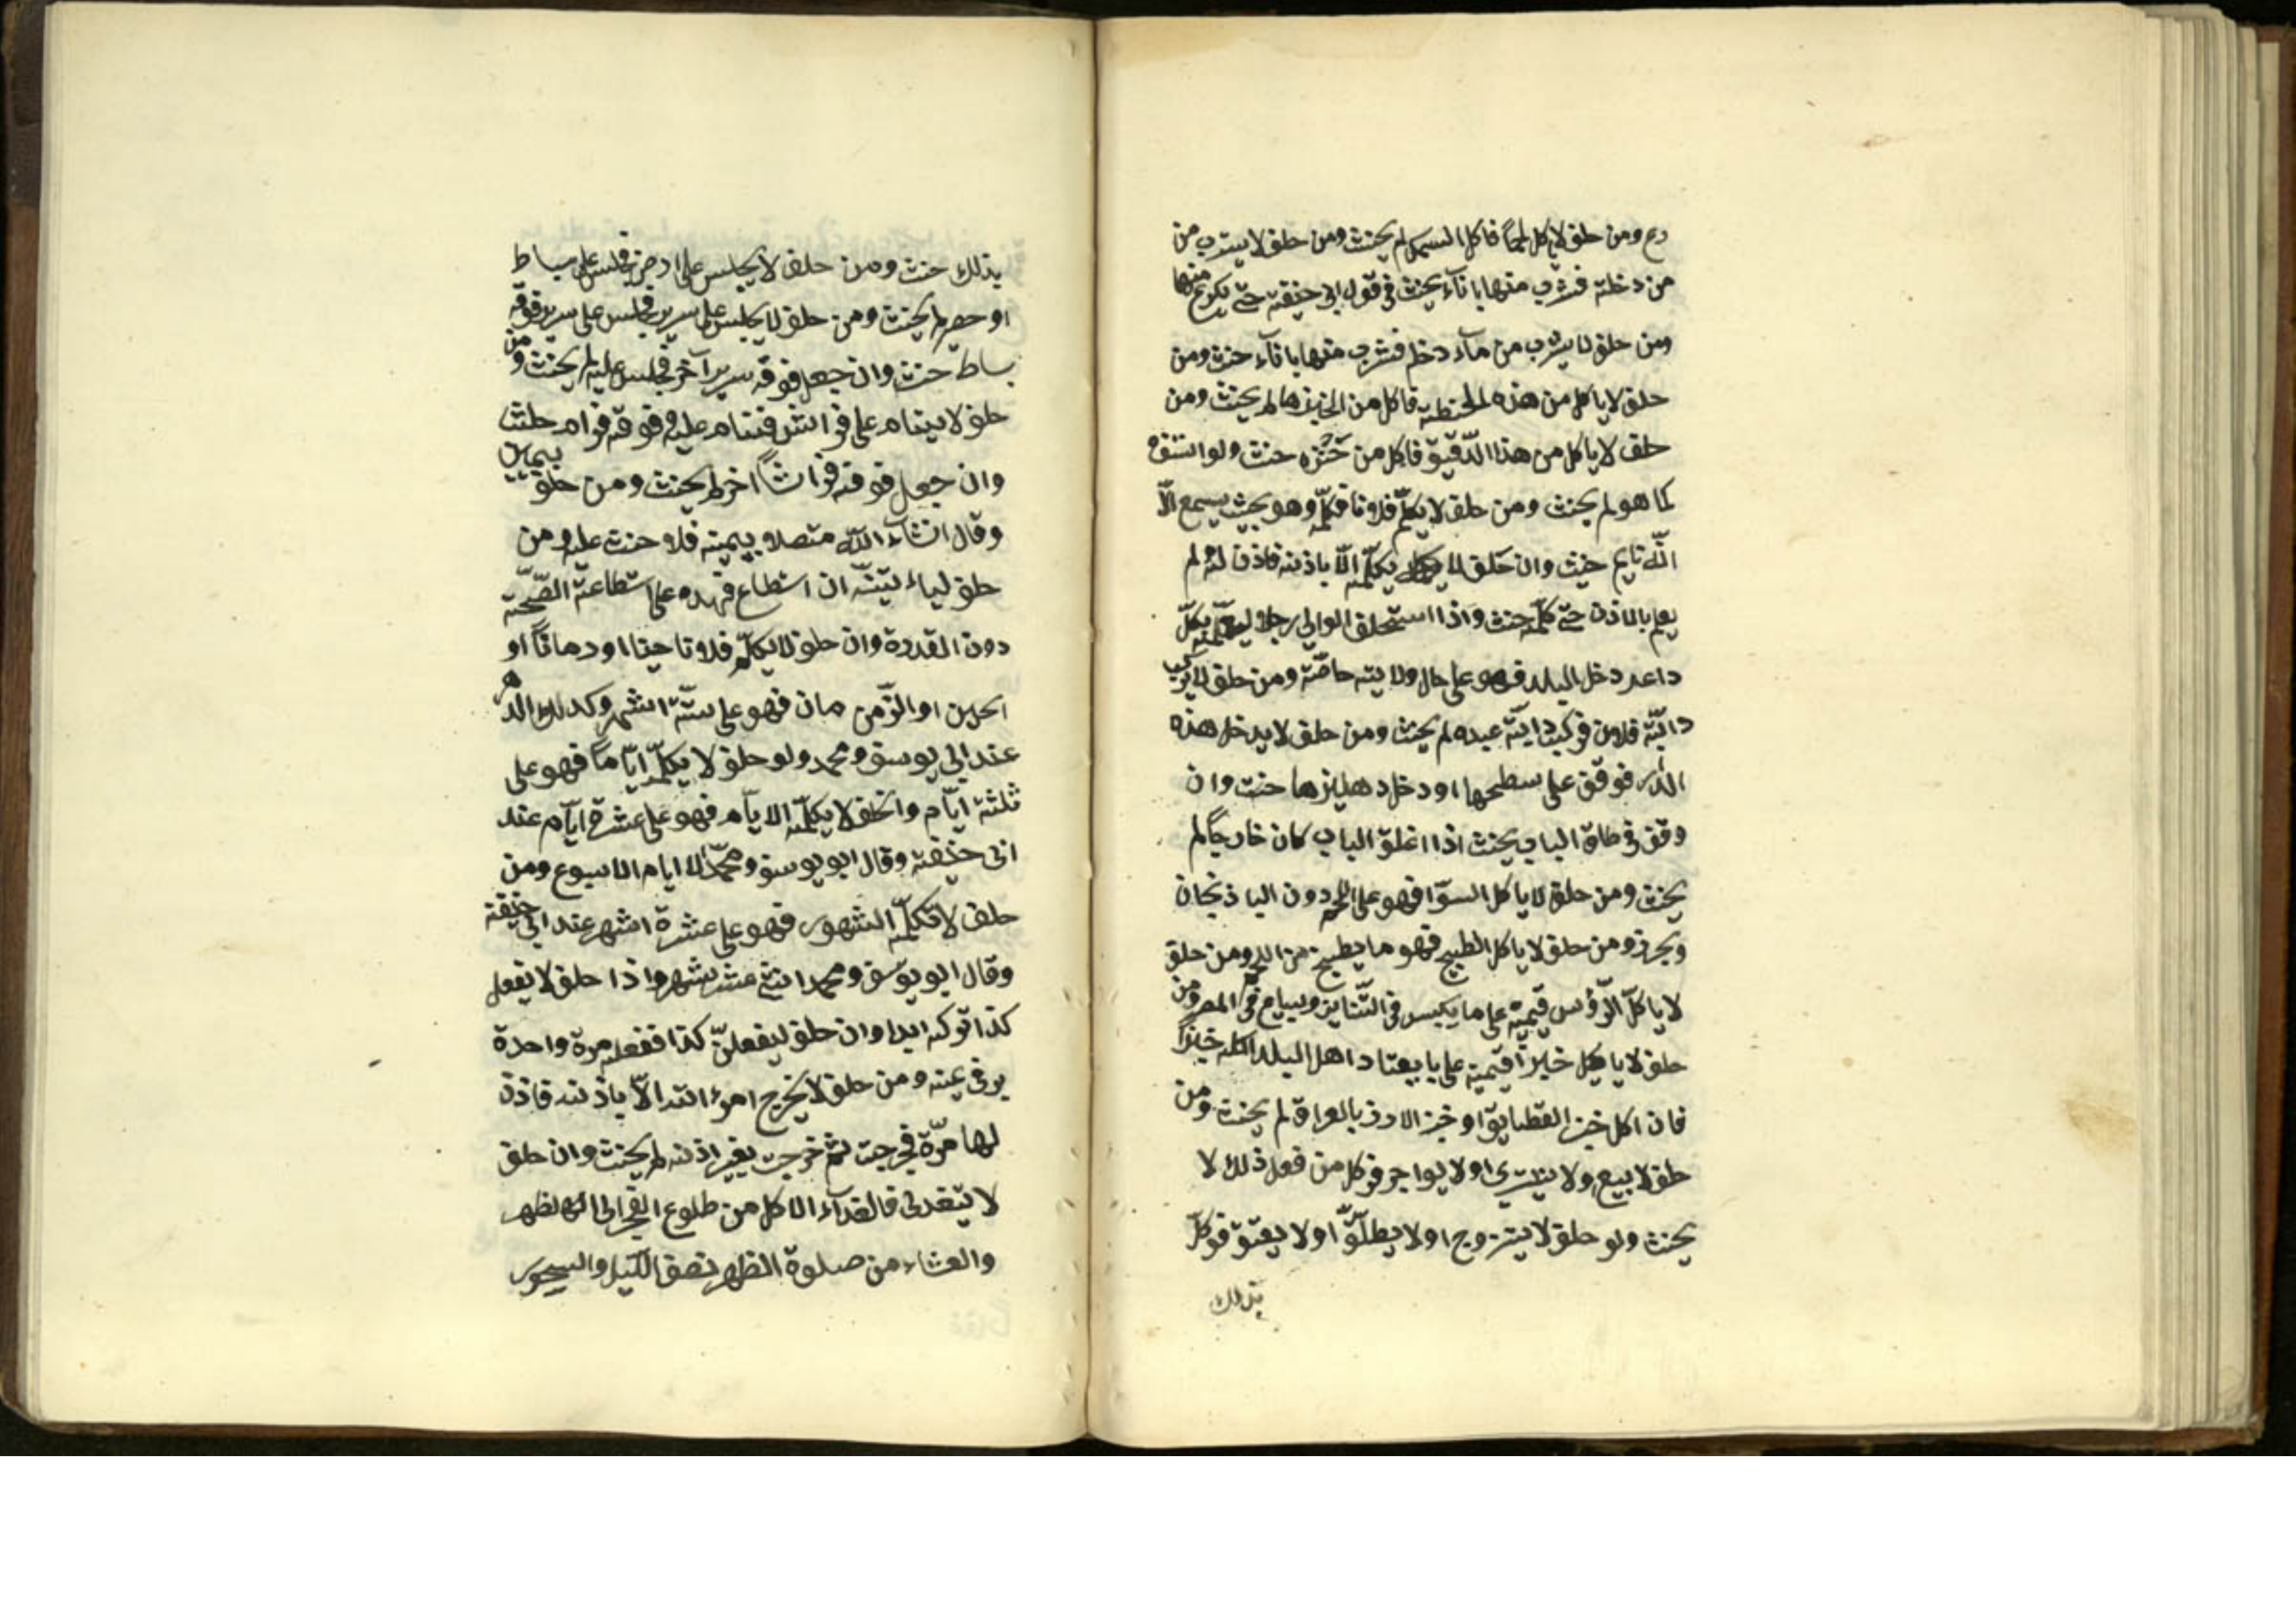 رع ومن حلف لا ياكل لحماً فاكل السمك لم يحنث ومن حلف لا يشرب من
من دخلة فشرب منها باناء يحنث في قول ابي حنيفة حتى يكرع منها
ومن حلف لا يشرب من مآء دخلة فشرب منها باناء حنث ومن
حلف لا ياكل من هذه الحنطة فاكل من الخبزها لم يحنث ومن
حلف لا ياكل من هذا الدّقيق فاكل من خبزه حنث ولو استفه
كما هو لم يحنث ومن حلف لا يكلّم فلانا فكلّمه وهو بحيث يسمع الّا
انّه نايم حنث وان حلف لا يكلّمه الّا باذنه فاذن له ولم
يعلم بالاذن حتى كلّمه حنث واذا استحلف الوالي رجلا ليعلّمنه بكلّ
داعر دخل البلد فهو على حال ولايته خاصّة ومن حلف لا يركب
دابّة فلان فركب دابّة عبده لم يحنث ومن حلف لا يدخل هذه
الدار فوقف على سطحها او دخل دهليزها حنث وان
وقف في طاق الباب يحنث اذا اغلق الباب كان خارجاً لم
يحنث ومن حلف لا ياكل السوّا فهو على اللحم دون الباذنجان
وبجرز ومن حلف لا ياكل الطبيخ فهو ما يطبخ من اللحم ومن حلف
لا ياكل الرّؤس فيمينه على ما يكبس في التّنانير ويباع في المصر ومن
حلف لا ياكل خبزاً فيمينه على يا يعتاد اهل البلد اكله خبزاً
فان اكل خبز القطايق او خبز الارز بالعراق لم يحنث ومن
حلف لا يبيع ولا يشتري او لا يواجر فوكل من فعل ذلك لا
يحنث ولو حلف لا يتزوج او لا يطلّق او لا يعتق فوكّل
بذلك
بذلك حنث ومن حلف لا يجلس على ارض فجلس على بساط
او حصير لم يحنث ومن حلف لا يجلس على سرير فجلس على سرير فوقه
بساط حنث وان جعل فوقه سرير آخر فجلس عليه لم يحنث ومن
حلف لا ينام على فراش فنام عليه وفوقه قرام حنث
وان جعل فوقه فراشاً اخر لم يحنث ومن حلف بيمين
وقال انشآء اللّه متصلا بيمينه فلا حنث عليه ومن
حلف ليا ٔتينّه ان استطاع فهذه على استطاعة الصّحّة
دون القدرة وان حلف لا يكلّم فلانا حينا او دهاناً او
الحين او الزّمن مان فهو على ستّة اشهر وكذلك الدهر
عند ابي يوسف ومحمد ولو حلف لا يكلّمه ايّاماً فهو على
ثلثة ايّام وان حلف لا يكلّمه الايّام فهو على عشرة ايّام عند
ابى حنيفة وقال ابو يوسف ومحمّد الا ايام الاسبوع ومن
حلف لا يكلّمه الشهور فهو على عشرة اشهر عند ابي حنيفة
وقال ابو يوسف ومحمد اثني عشر شهر واذا حلف لا يفعل
كذا تركه ابدا وان حلف ليفعلنّ كذا ففعله مرة واحدة
بر في يمينه ومن حلف لا يخرج امرٔاته الّا باذنه فاذن
لها مرّة فخرجت ثم خرجت بغير اذنه لم يحنث وان حلف
لا يتغدى فالغدآء الاكل من طلوع الفجر الى الظهر
والعشاء من صلوة الظهر نصف اللّيل والسحور